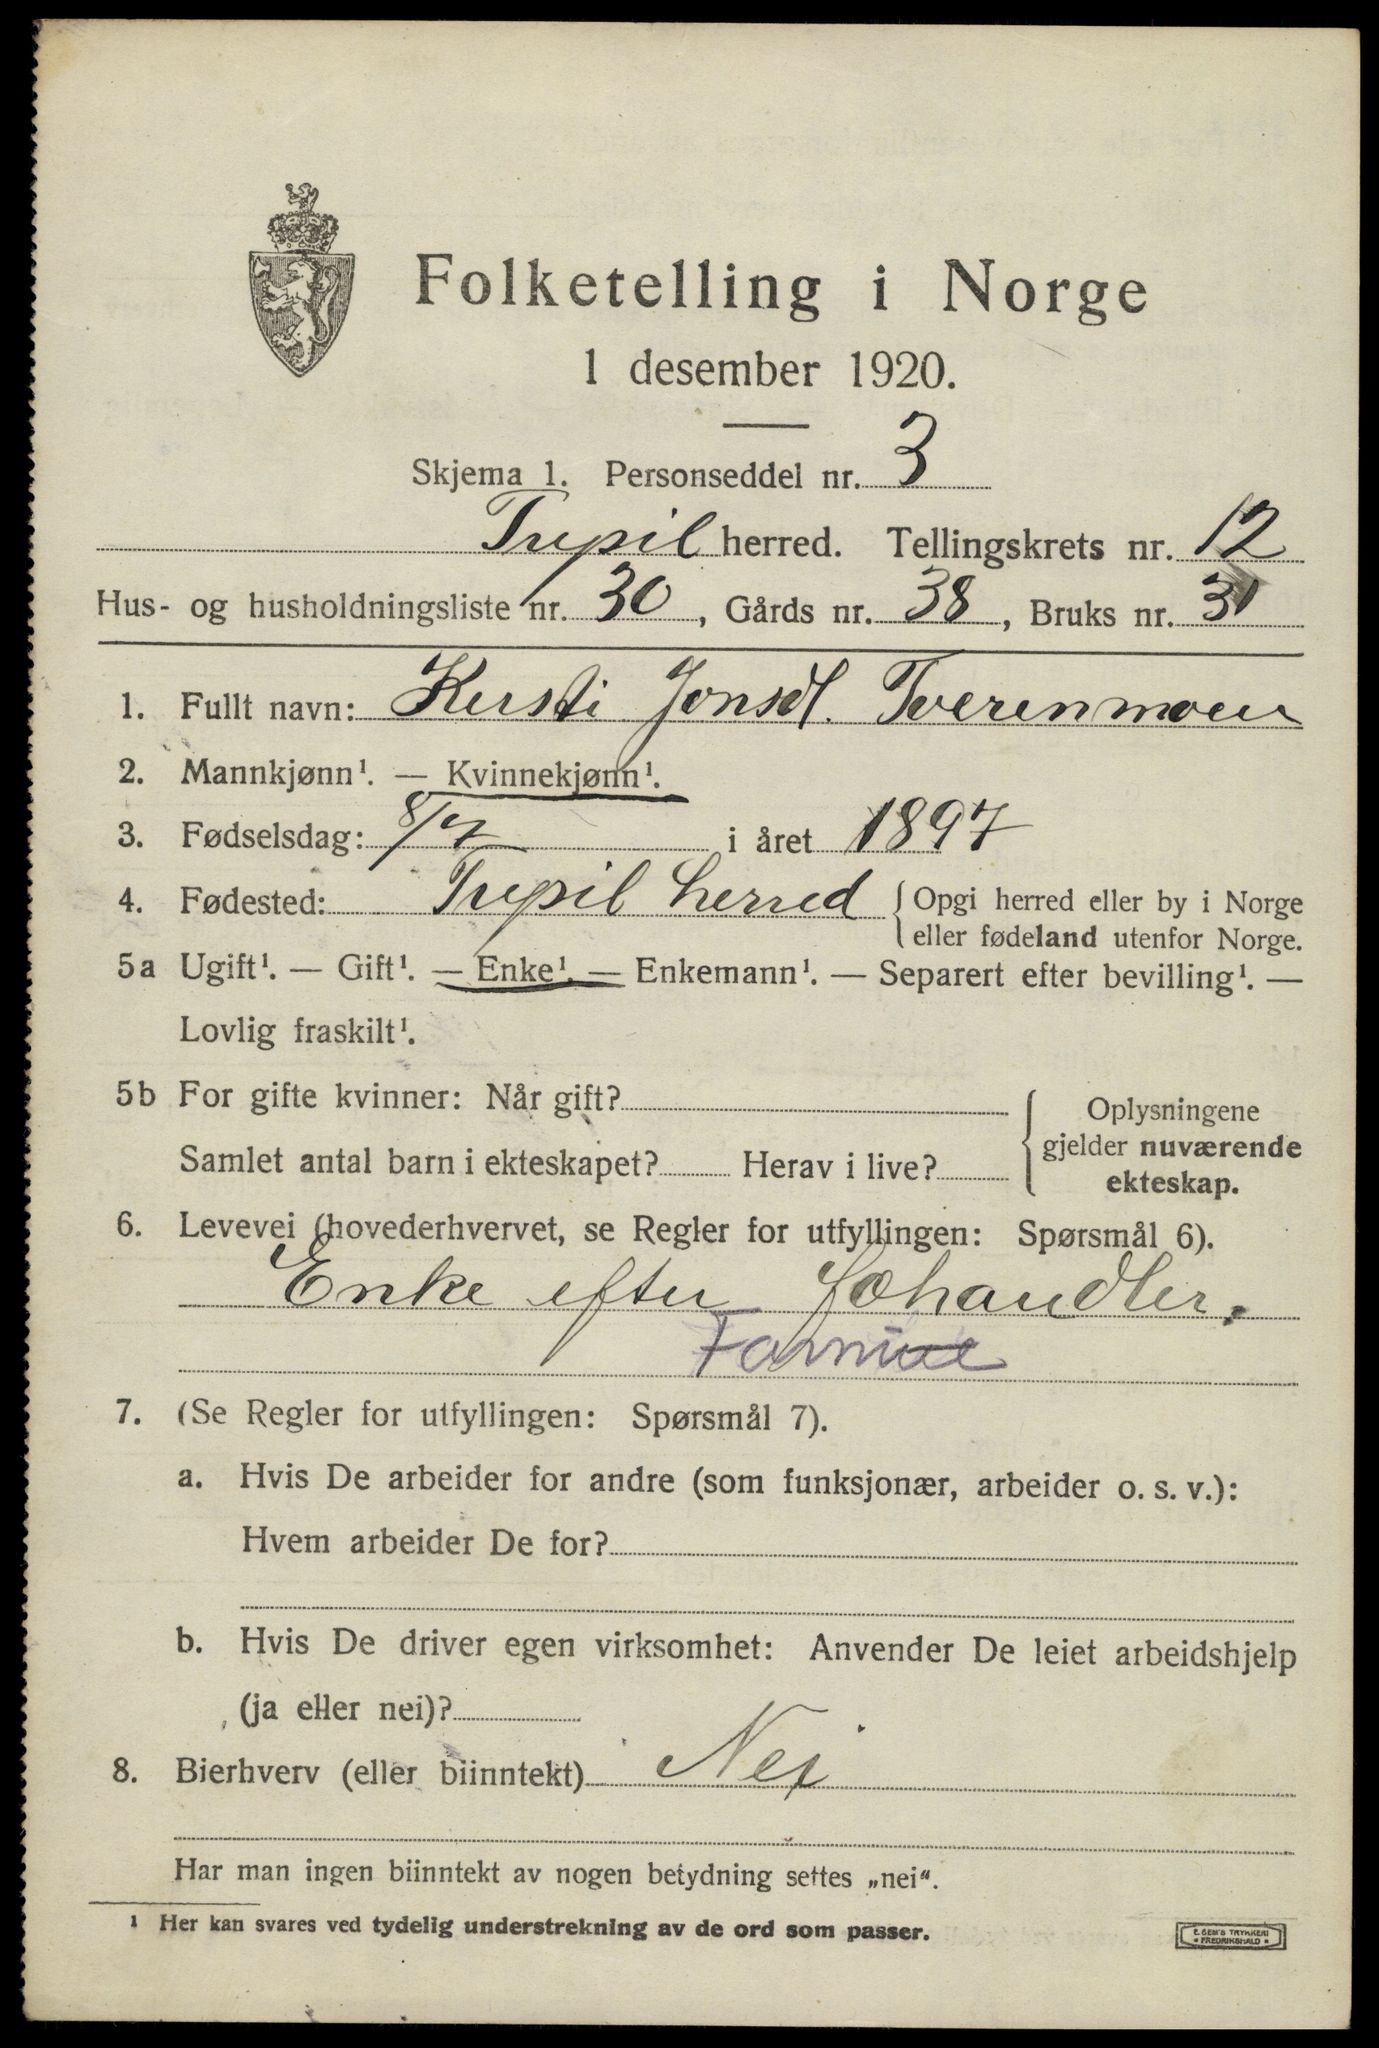 Folketelling i Norge
1 desember 1920.
Skjema 1. Personseddel nr. 3
Trysil herred. Tellingskrets nr. 12
Hus- og husholdningsliste nr. 30, Gårds nr. 38, Bruks nr. 31
1. Fullt navn: Kersti Jonsdt. Tverenmoen
2. Mannkjønn¹. — Kvinnekjønn¹.
3. Fødselsdag: 8/7 i året 1897
4. Fødested: Trysil herred { Opgi herred eller by i Norge
eller fødeland utenfor Norge.
5a Ugift¹. — Gift¹. — Enke¹. — Enkemann¹. — Separert efter bevilling¹. —
Lovlig fraskilt¹.
5b For gifte kvinner: Når gift?
Samlet antal barn i ekteskapet? Herav i live?
{ Oplysningene
gjelder nuværende
ekteskap.
6. Levevei (hovederhvervet, se Regler for utfyllingen: Spørsmål 6).
Enke efter
7. (Se Regler for utfyllingen: Spørsmål 7).
a. Hvis De arbeider for andre (som funksjonær, arbeider o. s. v.):
Hvem arbeider De for?
b. Hvis De driver egen virksomhet: Anvender De leiet arbeidshjelp
(ja eller nei)?
8. Bierhverv (eller biinntekt) Nei
Har man ingen biinntekt av nogen betydning settes „nei“.
¹ Her kan svares ved tydelig understrekning av de ord som passer.
E. SEM'S TRYKKERI
• FREDRIKSHALD •